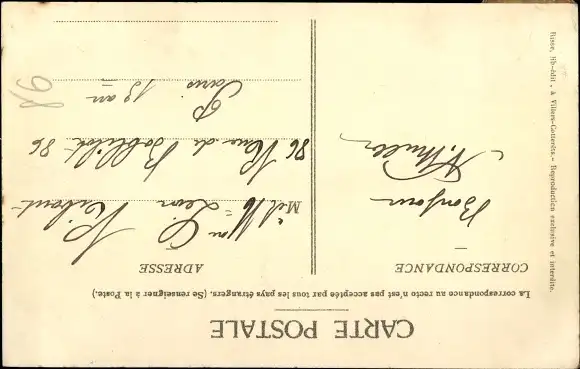 CARTE POSTALE
La correspondance au recto n'est pas acceptée par tous les pays étrangers. (Se renseigner à la Poste.)
CORRESPONDANCE
Bonjour
ADRESSE
M et Mme Léon
86 Rue de 86
Paris 13 —
98
Risse, lib-édit., à Villers-Cotterêts.- Reproduction exclusive et interdite.